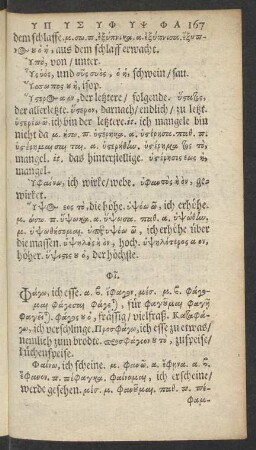 Υ Π Υ Σ Υ Φ Υ Ψ Φ Α 167
dem schlaffe. μ. σω. π. ἐξύπνηκα. α. ἐξύπνισα. ἔξυπ-
ου ὁ ἡ, aus dem schlaff erwacht.
Ὑπὸ, von / unter.
Ὗς ὑὸς, und σῦς συὸς, ὁ ἡ, schwein / sau.
Ὕσσωπος ου ἡ, isop.
der letztere / folgende. ὕστατος,
der allerletzte. ὕστερον, darnach / endlich / zu letzt.
ὑστερέω ῶ. ich bin der letztere. it. ich mangele bin
nicht da μ. ήσω. π. ὑστέρηκα. α. ὑστέρησα. παθ. π.
ὑστέρημαι σαι ται. α. ὑστερήθην. ὑστέρημα τος τὸ,
mangel. it. das hinterstellige. ὑστέρησις εως ἡ,
mangel.
Ὑφαίνω, ich wircke / webe. ὑφαντὸς ὴ ὸν, ge-
wircket.
Ὕψος εος τὸ, die höhe. ὑψόω ῶ, ich erhöhe.
μ. ώσω. π. ὕψωκα. α. ὕψωσα. παθ. α. ὑψώθην.
μ. ὑψωθήσομαι. ὑπερυψόω ῶ, ich erhöhe über
die massen. ὑψηλὸς ὴ ὸν, hoch. ὑψηλότερος α ον,
höher. ὕψιστος ου ὁ, der höchste.
Φῖ.
Φάγω, ich esse. α. β. ἔφαγον. μέσ. μ. β. φάγο-
μαι φάγεσαι
φάγος ου ὁ, frässig / vielfraß. Καταφά-
γω, ich verschlinge. Προσφάγω, ich esse zu etwas /
nemlich zum brodte. προσφάγιον ου τὸ, zuspeise /
küchenspeise.
Φαίνω, ich scheine. μ. φανῶ. α. ἔφηνα. α. β.
ἔφανον. π. πέφαγκα. φαίνομαι, ich erscheine /
werde gesehen. μέσ. μ. φανοῦμαι. παθ. π. πέ-
φαμ-